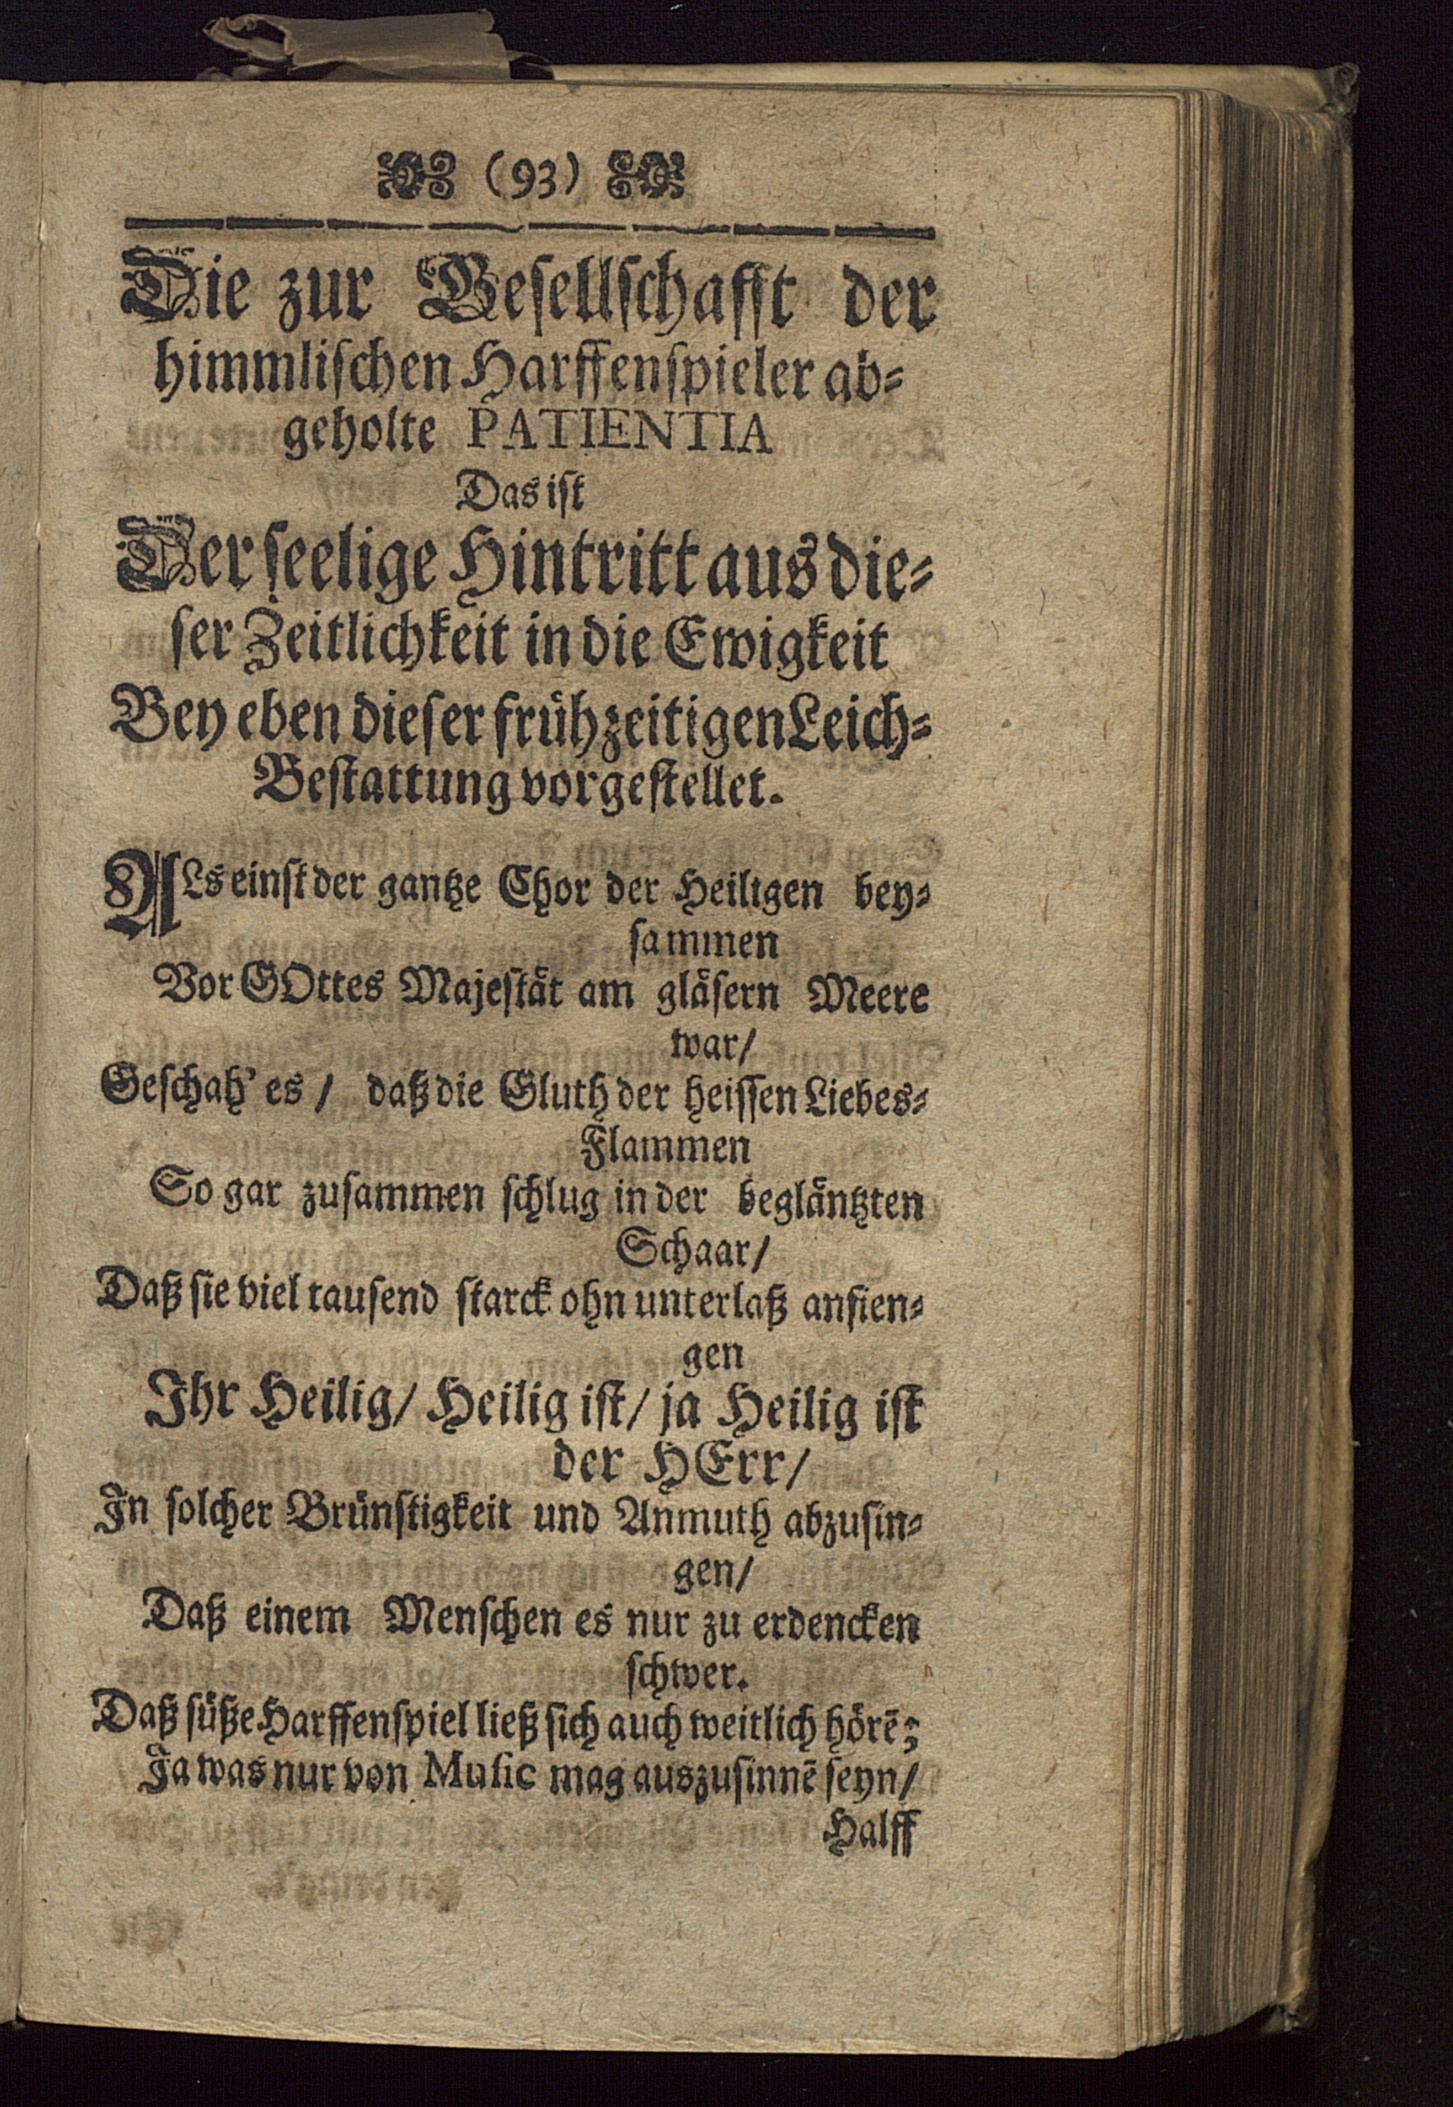 (93)
Die zur Gesellschafft der
himmlischen Harffenspieler ab-
geholte PATIENTIA
Das ist
Der seelige Hintritt aus die-
ser Zeitlichkeit in die Ewigkeit
Bey eben dieser frühzeitigen Leich-
Bestattung vorgestellet.
ALs einst der gantze Chor der Heiligen bey-
sammen
Vor GOttes Majestät am gläsern Meere
war/
Geschah' es / daß die Gluth der heissen Liebes-
Flammen
So gar zusammen schlug in der begläntzten
Schaar/
Daß sie viel tausend starck ohn unterlaß anfien-
gen
Ihr Heilig/ Heilig ist/ ja Heilig ist
der HErr/
In solcher Brünstigkeit und Anmuth abzusin-
gen/
Daß einem Menschen es nur zu erdencken
schwer.
Daß süße Harffenspiel ließ sich auch weitlich hörē;
Ja was nur von Music mag auszusinnē seyn/
Halff